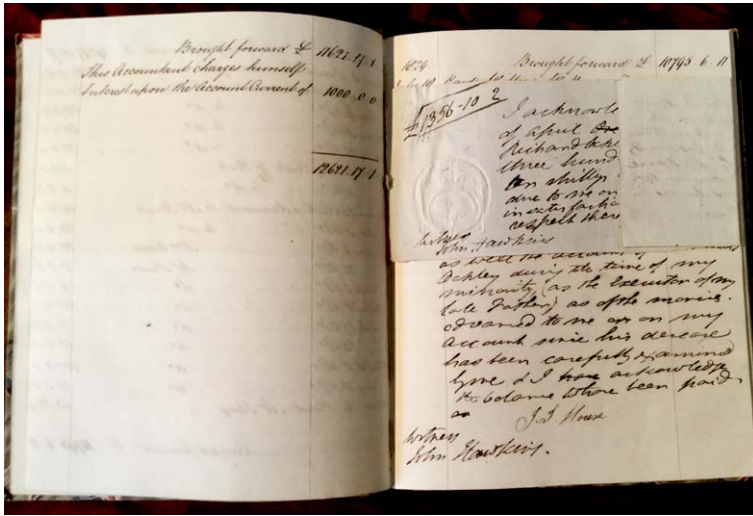 Brought forward £ 11621.17.1
This Accountant charges himself
Interest upon the Account Current of 1000.0.0
12621.17.1
1829 Brought forward £ 10795 6 11
£1356-10
I acknowle
of April
Richard
three hund
ten shillings
due to me on
in satisfactio
respect there
Witness
John Hawkins
as well the account of
Ackley during the time of my
minority (as the Executor of my
late Father) as of the monies
to me or on my
account since his decease
has been carefully examined
by me & I have acknowledge
the balance to have been paid
J. J. House
Witness
John Hawkins.